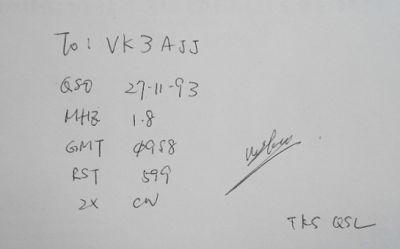 To: VK3AJJ
QSO 27-11-93
MHz 1.8
GMT 0958
RST 599
2X CW
TKS QSL